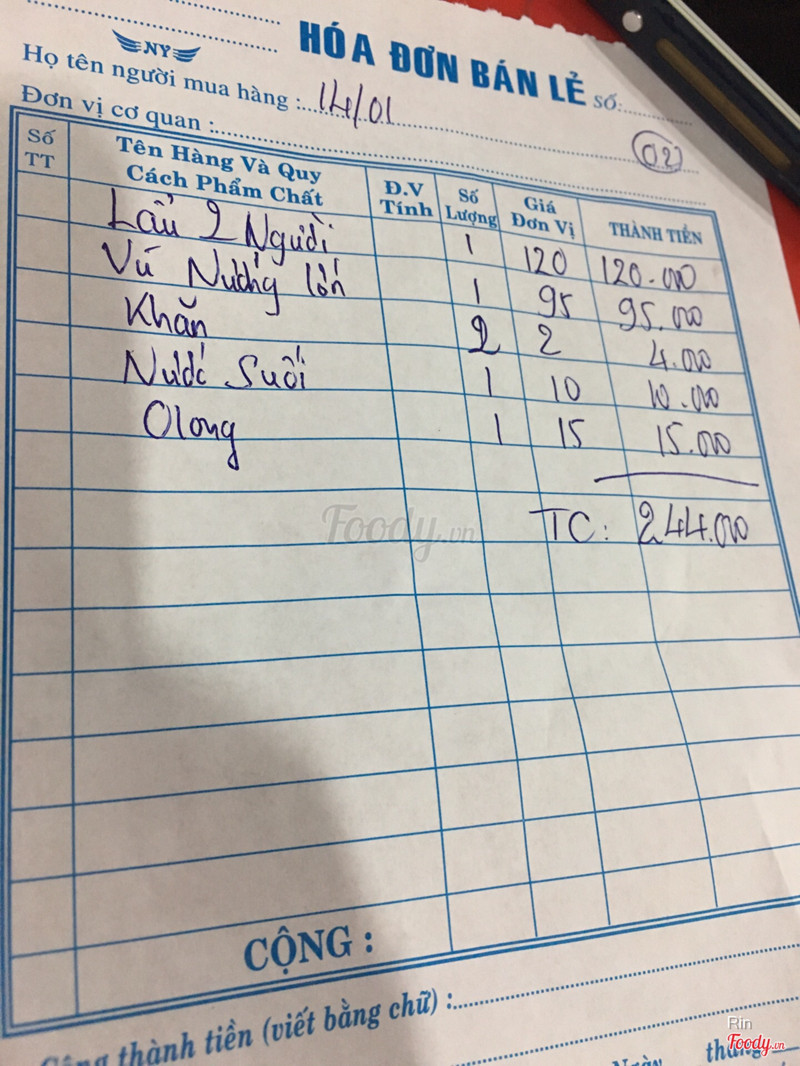 NY
HÓA ĐƠN BÁN LẺ Số:
Họ tên người mua hàng : 14/01
Đơn vị cơ quan :
02
Số TT Tên Hàng Và Quy Cách Phẩm Chất Đ.V Tính Số Lượng Giá Đơn Vị THÀNH TIỀN
Lẩu 2 Người 1 120 120.000
Vú Nướng lớn 1 95 95.000
Khăn 2 2 4.000
Nước Suối 1 10 10.000
Olong 1 15 15.000
TC: 244.000
Foody.vn
CỘNG :
Cộng thành tiền (viết bằng chữ) :
Ngày tháng
Rin
Foody.vn